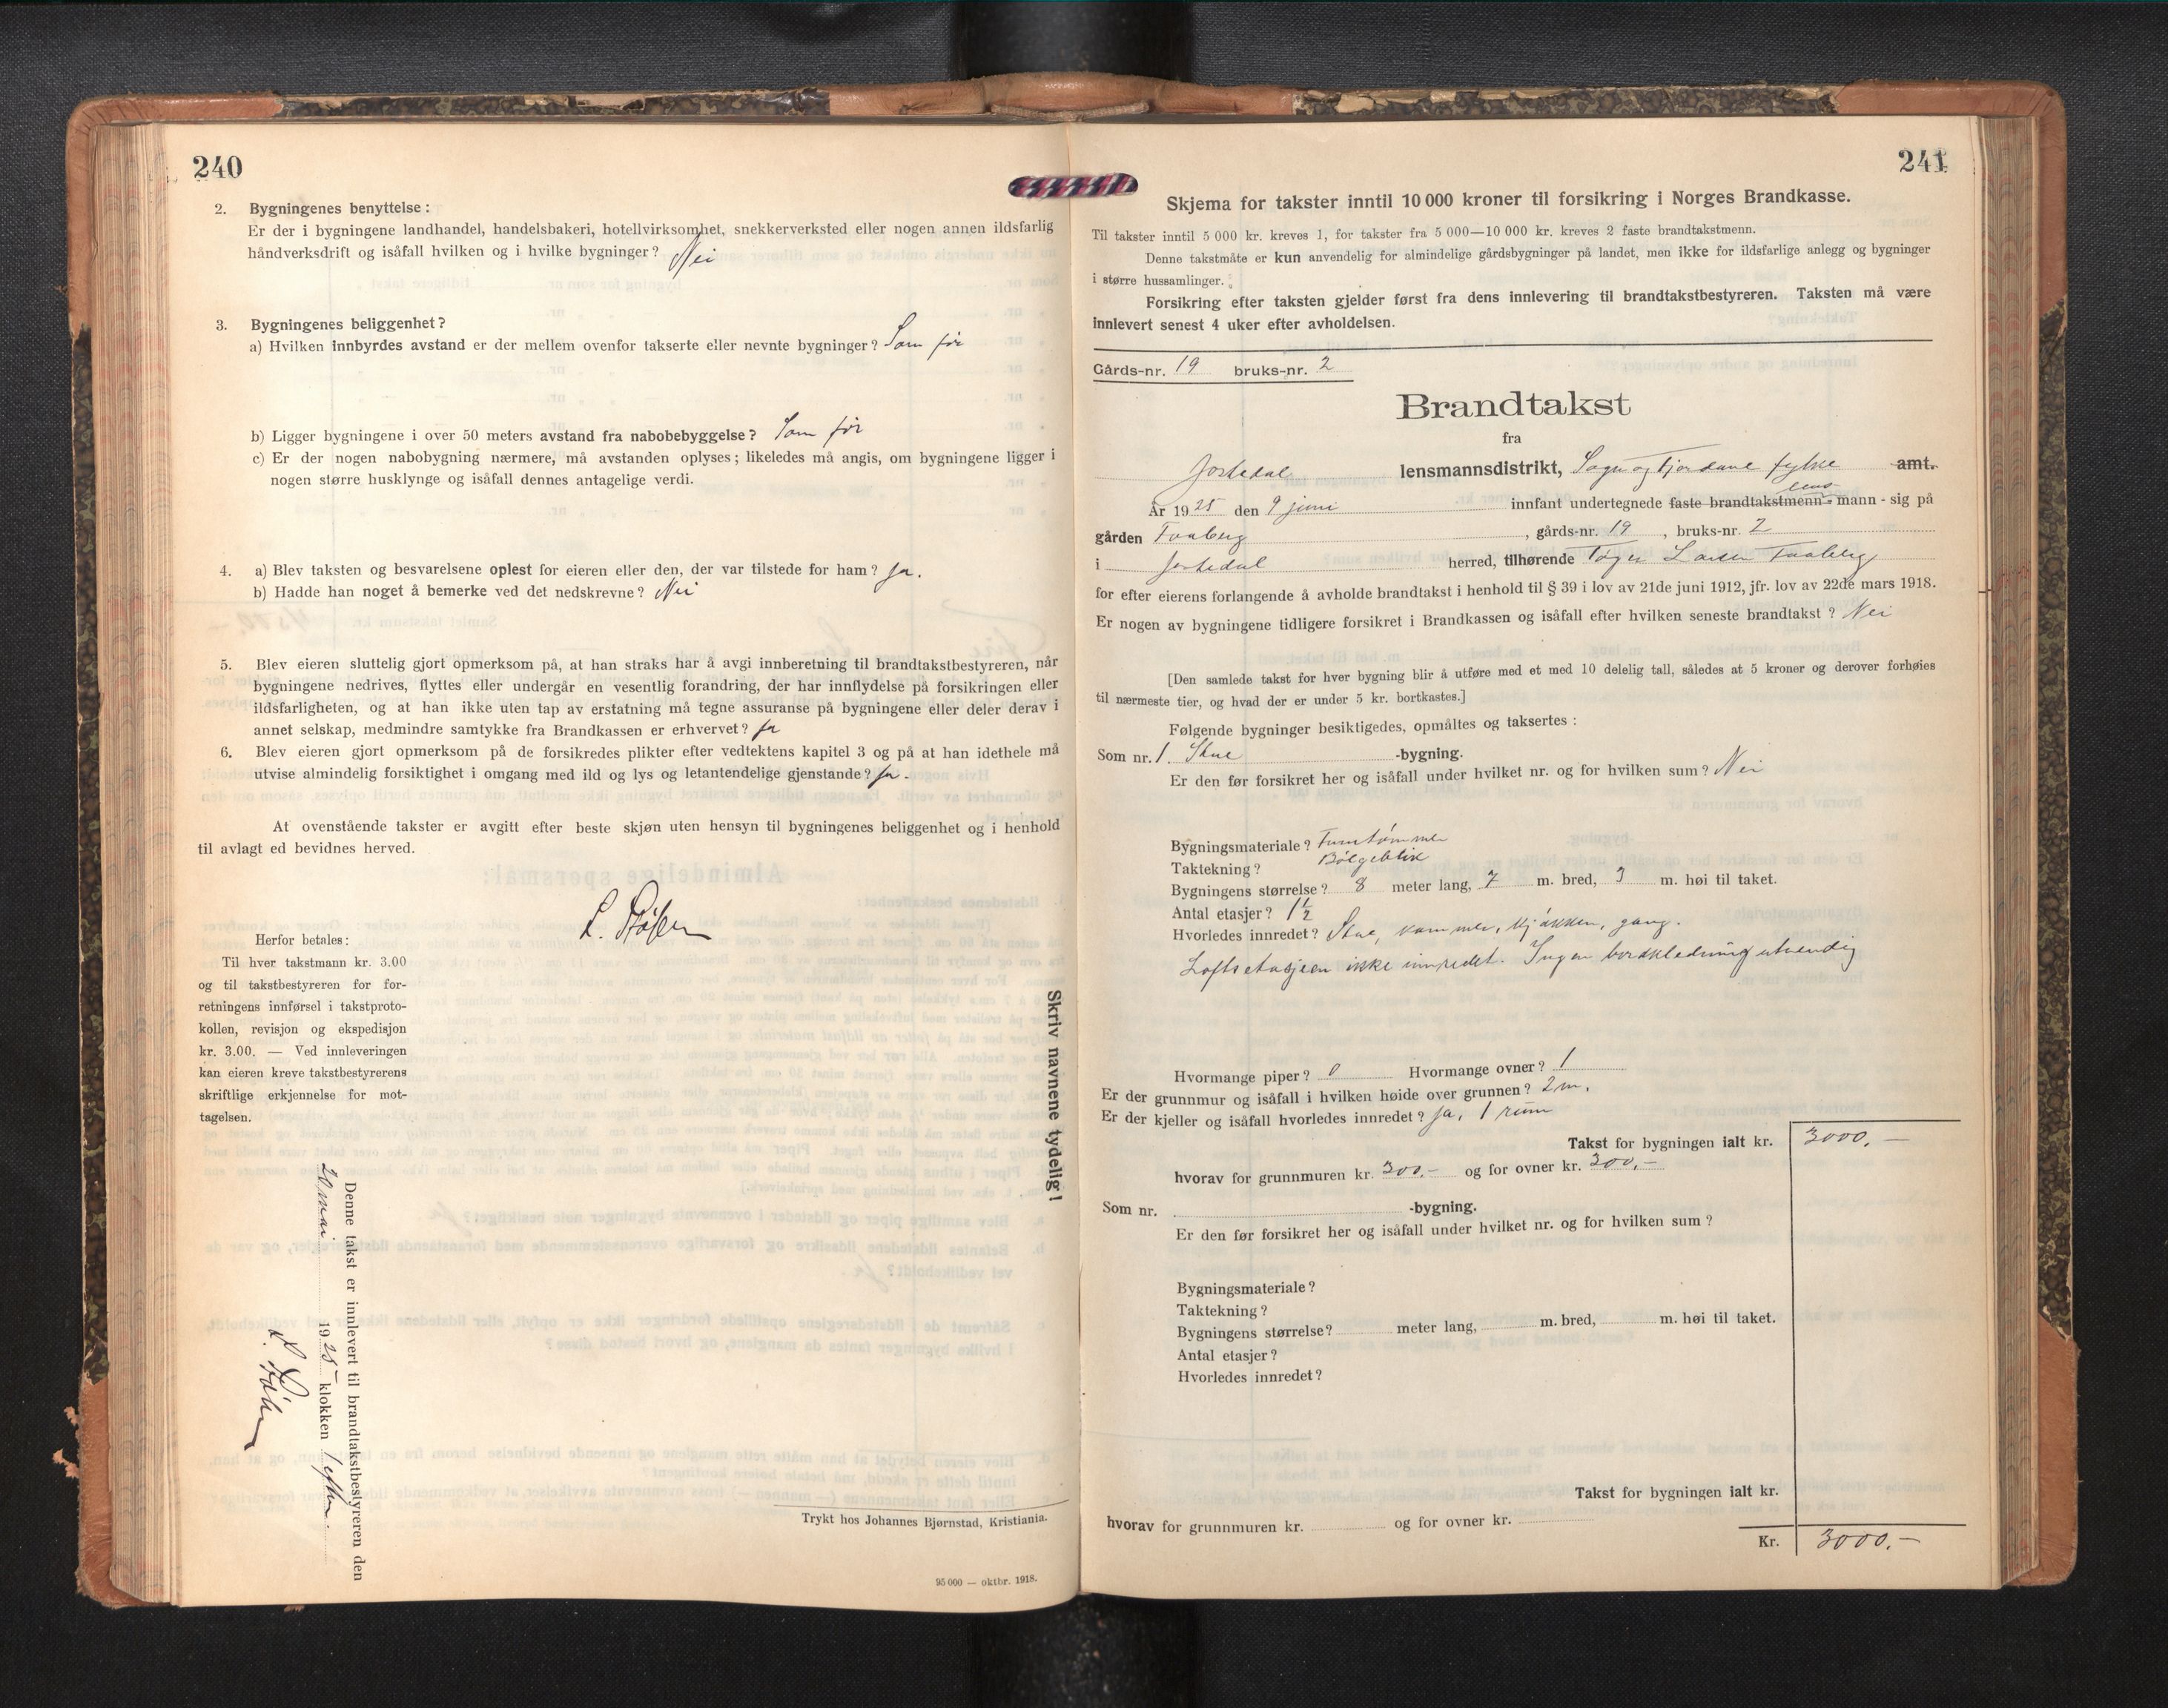 240
2. Bygningenes benyttelse:
Er der i bygningene landhandel, handelsbakeri, hotellvirksomhet, snekkerverksted eller nogen annen ildsfarlig
håndverksdrift og isåfall hvilken og i hvilke bygninger? Nei
3. Bygningenes beliggenhet?
a) Hvilken innbyrdes avstand er der mellem ovenfor takserte eller nevnte bygninger? Som før
b) Ligger bygningene i over 50 meters avstand fra nabobebyggelse? Som før
c) Er der nogen nabobygning nærmere, må avstanden oplyses; likeledes må angis, om bygningene ligger i
nogen større husklynge og isåfall dennes antagelige verdi.
4. a) Blev taksten og besvarelsene oplest for eieren eller den, der var tilstede for ham? Ja.
b) Hadde han noget å bemerke ved det nedskrevne? Nei
5. Blev eieren sluttelig gjort opmerksom på, at han straks har å avgi innberetning til brandtakstbestyreren, når
bygningene nedrives, flyttes eller undergår en vesentlig forandring, der har innflydelse på forsikringen eller
ildsfarligheten, og at han ikke uten tap av erstatning må tegne assuranse på bygningene eller deler derav i
annet selskap, medmindre samtykke fra Brandkassen er erhvervet? Ja
6. Blev eieren gjort opmerksom på de forsikredes plikter efter vedtektens kapitel 3 og på at han idethele må
utvise almindelig forsiktighet i omgang med ild og lys og letantendelige gjenstande? Ja.
At ovenstående takster er avgitt efter beste skjøn uten hensyn til bygningenes beliggenhet og i henhold
til avlagt ed bevidnes herved.
Herfor betales:
Til hver takstmann kr. 3.00
og til takstbestyreren for for-
retningens innførsel i takstproto-
kollen, revisjon og ekspedisjon
kr. 3.00. — Ved innleveringen
kan eieren kreve takstbestyrerens
skriftlige erkjennelse for mot-
tagelsen.
Skriv navnene tydelig!
Denne takst er innlevert til brandtakstbestyreren den
20 mai 1925 klokken 1 efterm.
Trykt hos Johannes Bjørnstad, Kristiania.
95 000 — oktbr. 1918.
241
Skjema for takster inntil 10 000 kroner til forsikring i Norges Brandkasse.
Til takster inntil 5 000 kr. kreves 1, for takster fra 5 000—10 000 kr. kreves 2 faste brandtakstmenn.
Denne takstmåte er kun anvendelig for almindelige gårdsbygninger på landet, men ikke for ildsfarlige anlegg og bygninger
i større hussamlinger.
Forsikring efter taksten gjelder først fra dens innlevering til brandtakstbestyreren. Taksten må være
innlevert senest 4 uker efter avholdelsen.
Gårds-nr. 19 bruks-nr. 2
Brandtakst
fra
Jostedal lensmannsdistrikt, Sogn og Fjordane fylke amt.
År 1925 den 9 juni innfant undertegnede faste brandtakstmenn - lensmann - sig på
gården Faaberg, gårds-nr. 19, bruks-nr. 2
i Jostedal herred, tilhørende Tøger Larsen Faaberg
for efter eierens forlangende å avholde brandtakst i henhold til § 39 i lov av 21de juni 1912, jfr. lov av 22de mars 1918.
Er nogen av bygningene tidligere forsikret i Brandkassen og isåfall efter hvilken seneste brandtakst? Nei
[Den samlede takst for hver bygning blir å utføre med et med 10 delelig tall, således at 5 kroner og derover forhøies
til nærmeste tier, og hvad der er under 5 kr. bortkastes.]
Følgende bygninger besiktigedes, opmåltes og taksertes:
Som nr. 1 Stue -bygning.
Er den før forsikret her og isåfall under hvilket nr. og for hvilken sum? Nei
Bygningsmateriale? Furutømmer
Taktekning? Bølgeblik
Bygningens størrelse? 8 meter lang, 7 m. bred, 3 m. høi til taket.
Antal etasjer? 1 1/2
Hvorledes innredet? Stue, kammer, kjøkken, gang.
Loftsetasjeen ikke innredet. Ingen bordkledning utvendig
Hvormange piper? 0 Hvormange ovner? 1
Er der grunnmur og isåfall i hvilken høide over grunnen? 2 m.
Er der kjeller og isåfall hvorledes innredet? Ja, 1 rum
Takst for bygningen ialt kr. 3000.—
hvorav for grunnmuren kr. 300.— og for ovner kr. 300.—
Som nr. -bygning.
Er den før forsikret her og isåfall under hvilket nr. og for hvilken sum?
Bygningsmateriale?
Taktekning?
Bygningens størrelse? meter lang, m. bred, m. høi til taket.
Antal etasjer?
Hvorledes innredet?
Takst for bygningen ialt kr.
hvorav for grunnmuren kr. og for ovner kr.
Kr. 3000.—